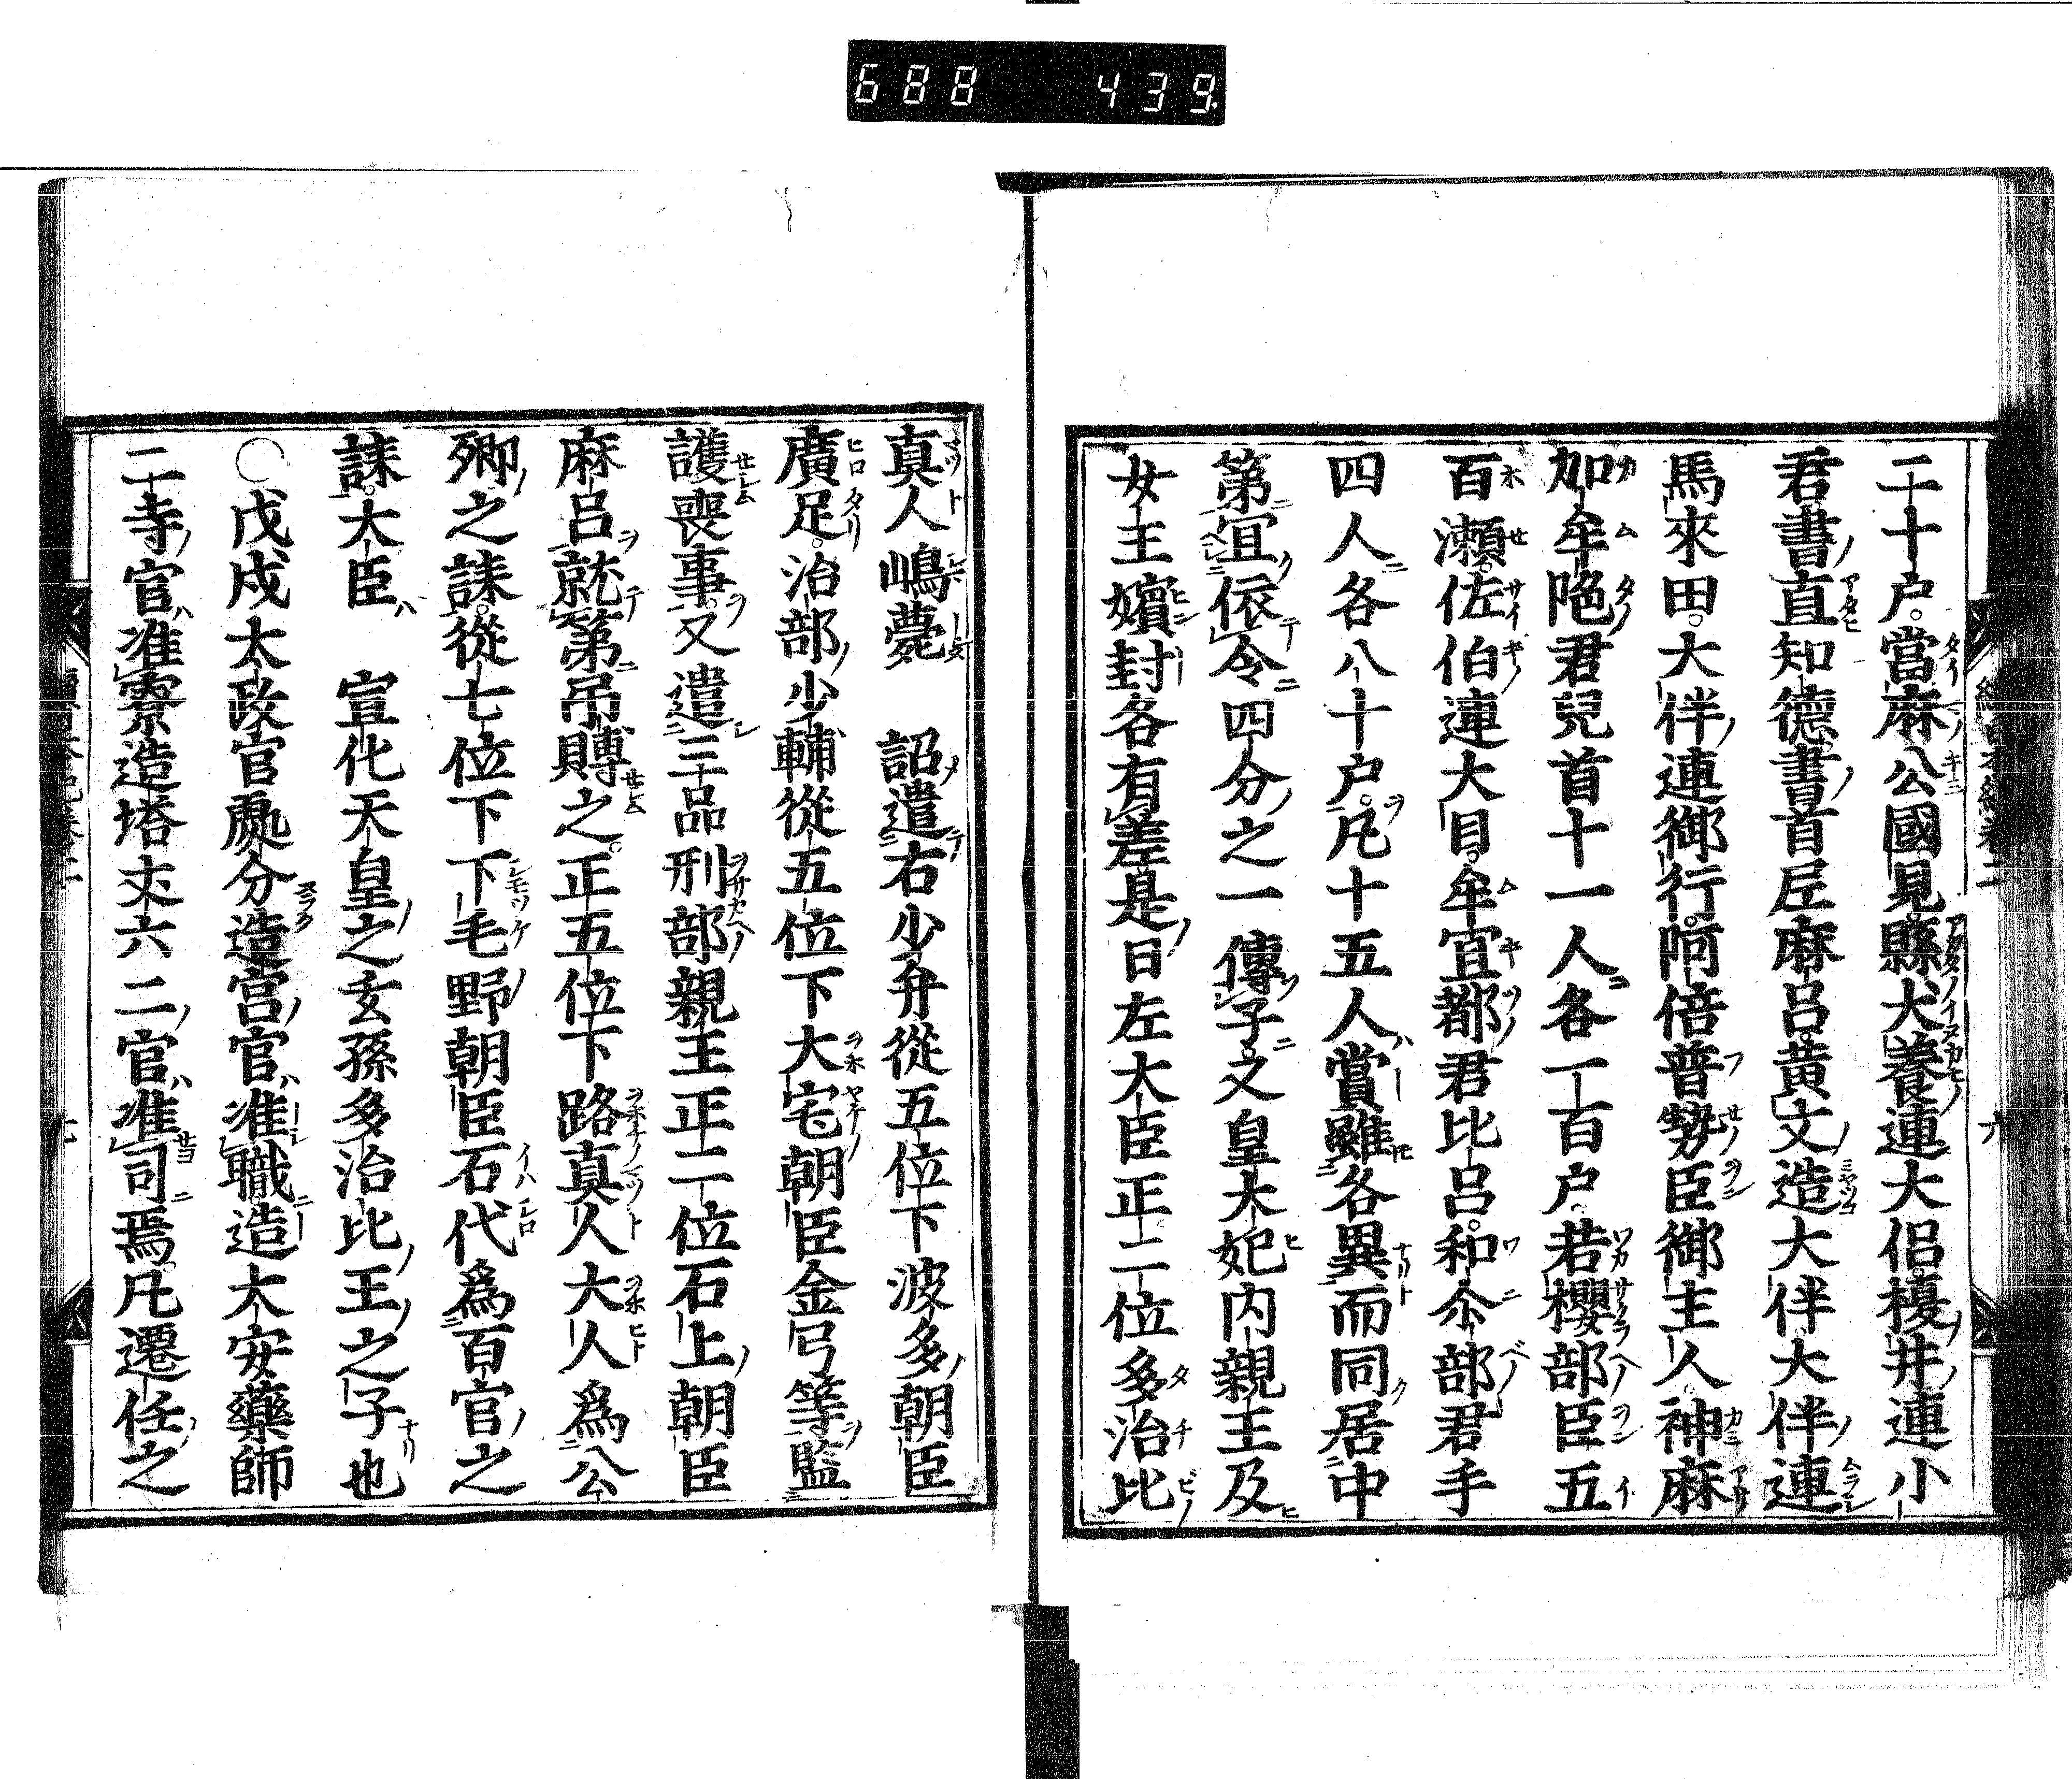 688 439
二十户當麻公國見縣犬養連大侣榎井連小
君書直知德書首尼麻呂黄文造大伴大伴連
馬來田大伴連御行阿倍普勢臣御主人神麻
加牟陁君兒首十一人各一百户若櫻部臣五
百瀬佐伯連大目牟宜都君比呂和尒部君手
四人各八十户凡十五人賞雖各異而同居中
第宜依令四分之一傳子又皇大妃内親王及
女王嬪封各有差是日左大臣正二位多治比
真人嶋薨 詔遣右少弁從五位下波多朝臣
廣足治部少輔從五位下大宅朝臣金弓等監
護喪事又遣三品刑部親王正二位石上朝臣
麻呂就第吊賻之正五位下路真人大人爲公
卿之誄從七位下下毛野朝臣石代爲百官之
誄大臣 宣化天皇之玄孫多治比王之子也
○戊戌太政官處分造宮官准職造大安藥師
二寺官准寮造塔丈六二官准司焉凡遷任之